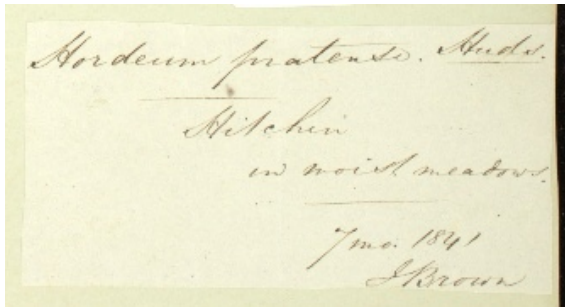 Hordeum pratense. Huds.
Hitchin
in moist meadows.
7 mo. 1841
J Brown